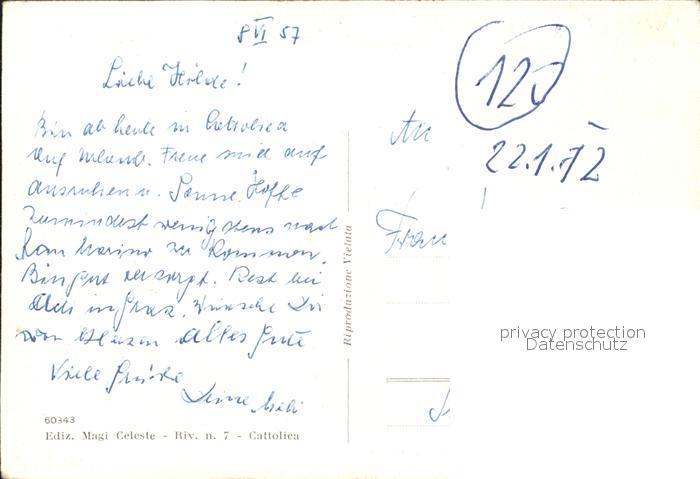 8 VI 57
Liebe Hilde!
Bin ab heute in Cattolica
auf Urlaub. Freue mich auf
ausruhen u. Sonne. Hoffe
zumindest wenigstens nach
San Marino zu kommen.
Bin gut versorgt. Rest bei
in Graz. Wünsche Dir
von Herzen alles Gute
Viele Grüße
Deine
60343
Ediz. Magi Celeste - Riv. n. 7 - Cattolica
Riproduzione Vietata
An
Frau
120
22.1.72
privacy protection
Datenschutz